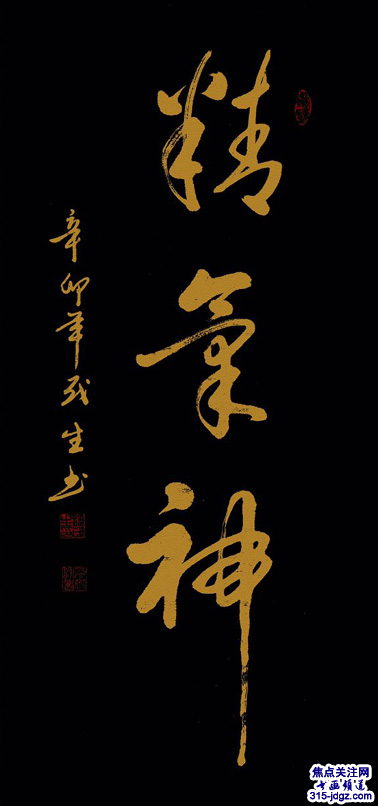 精氣神
辛卯年生书
焦点关注网
书画频道
315-jdgz.com